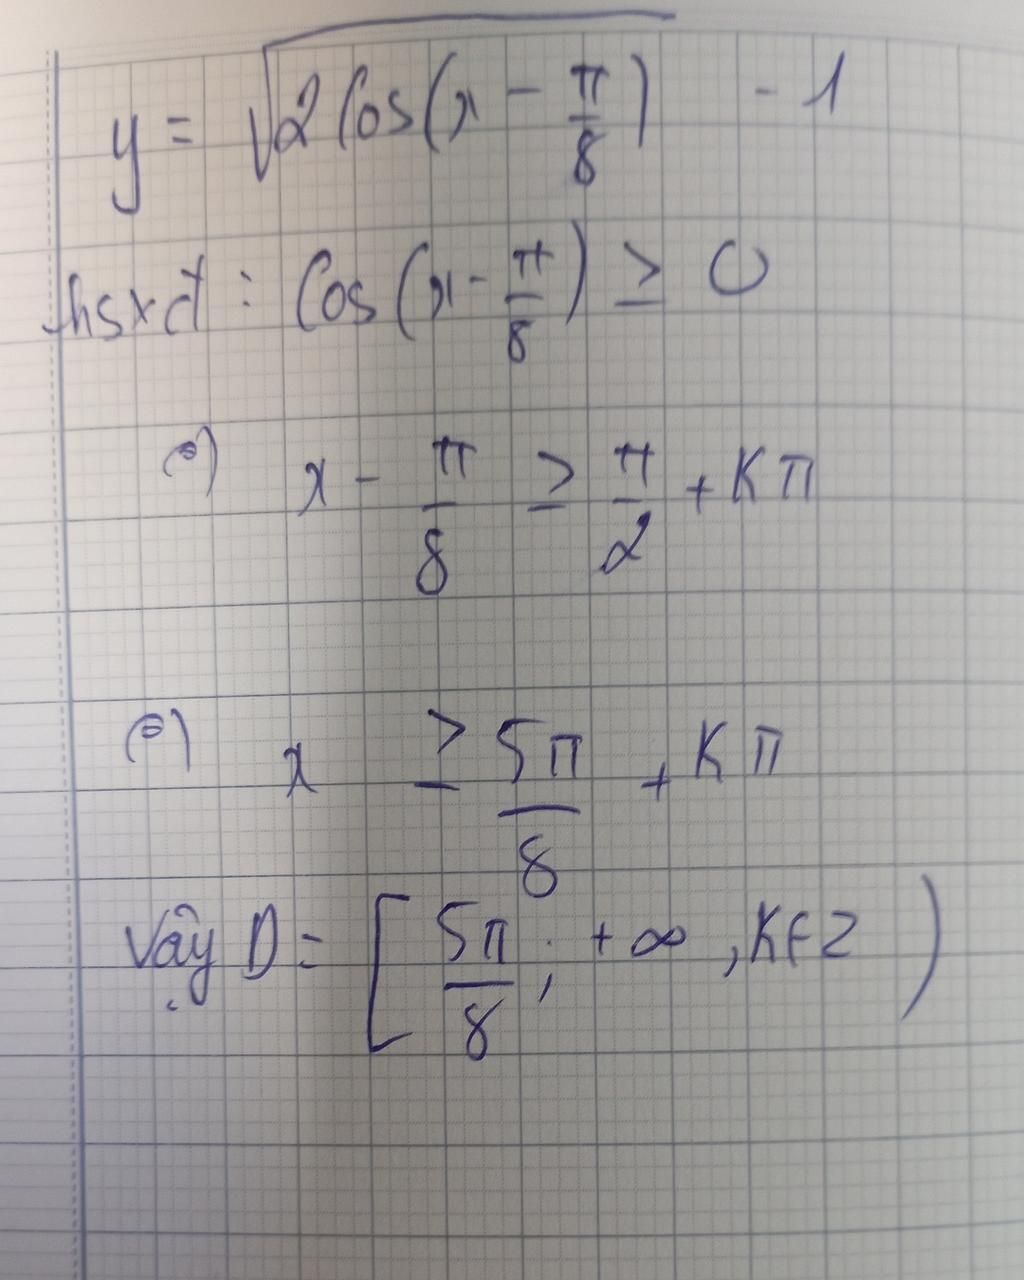 y = √(2 Cos(x - π/8)) - 1
hsxđ : Cos(x - π/8) ≥ 0
(=) x - π/8 ≥ π/2 + Kπ
(=) x ≥ 5π/8 + Kπ
Vậy D = [5π/8 ; +∞ , K∈Z)